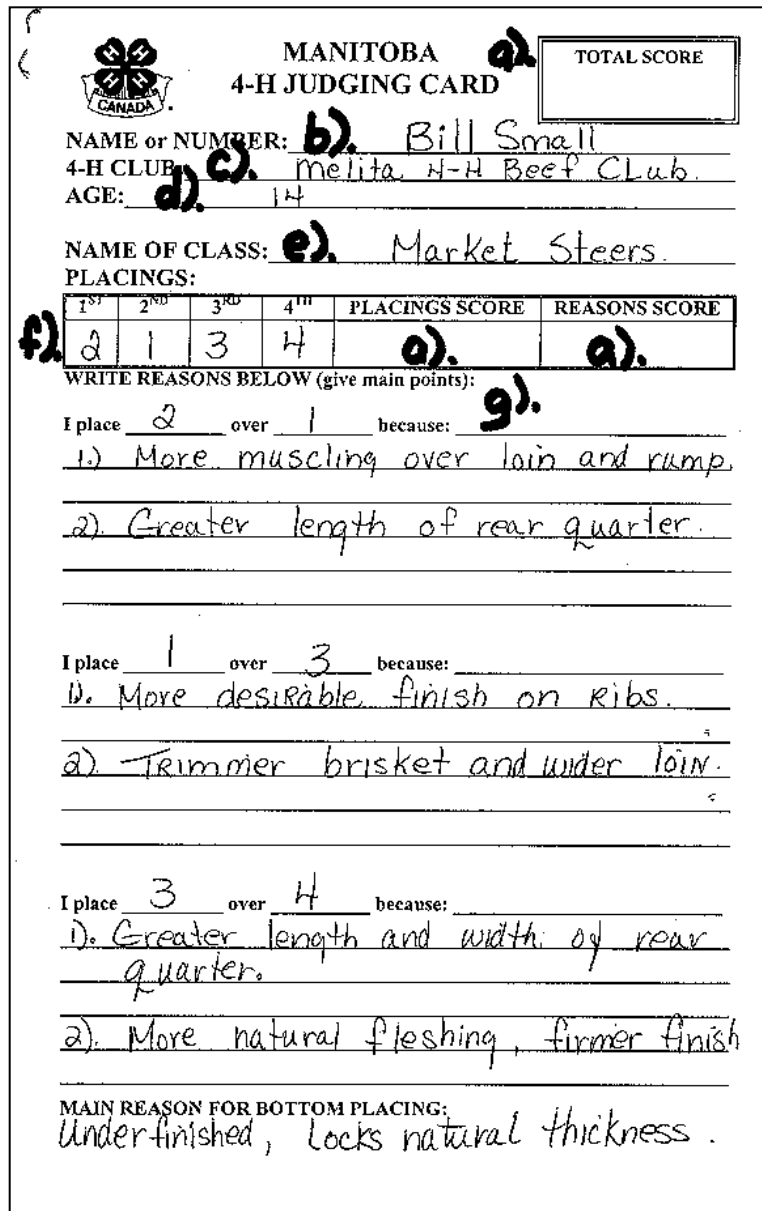 H H
H H
CANADA
MANITOBA
4-H JUDGING CARD
a). TOTAL SCORE
NAME or NUMBER: b). Bill Small
4-H CLUB c). Melita H-H Beef CLub.
AGE: d). 14
NAME OF CLASS: e). Market Steers.
PLACINGS:
1ST 2ND 3RD 4TH PLACINGS SCORE REASONS SCORE
f). 2 1 3 4 a). a).
WRITE REASONS BELOW (give main points):
I place 2 over 1 because: g).
1.) More muscling over loin and rump.
2). Greater length of rear quarter.
I place 1 over 3 because:
1). More desirable finish on Ribs.
2). Trimmer brisket and wider loin.
I place 3 over 4 because:
1). Greater length and width of rear
quarter.
2). More natural fleshing, firmer finish
MAIN REASON FOR BOTTOM PLACING:
Underfinished, Locks natural thickness.